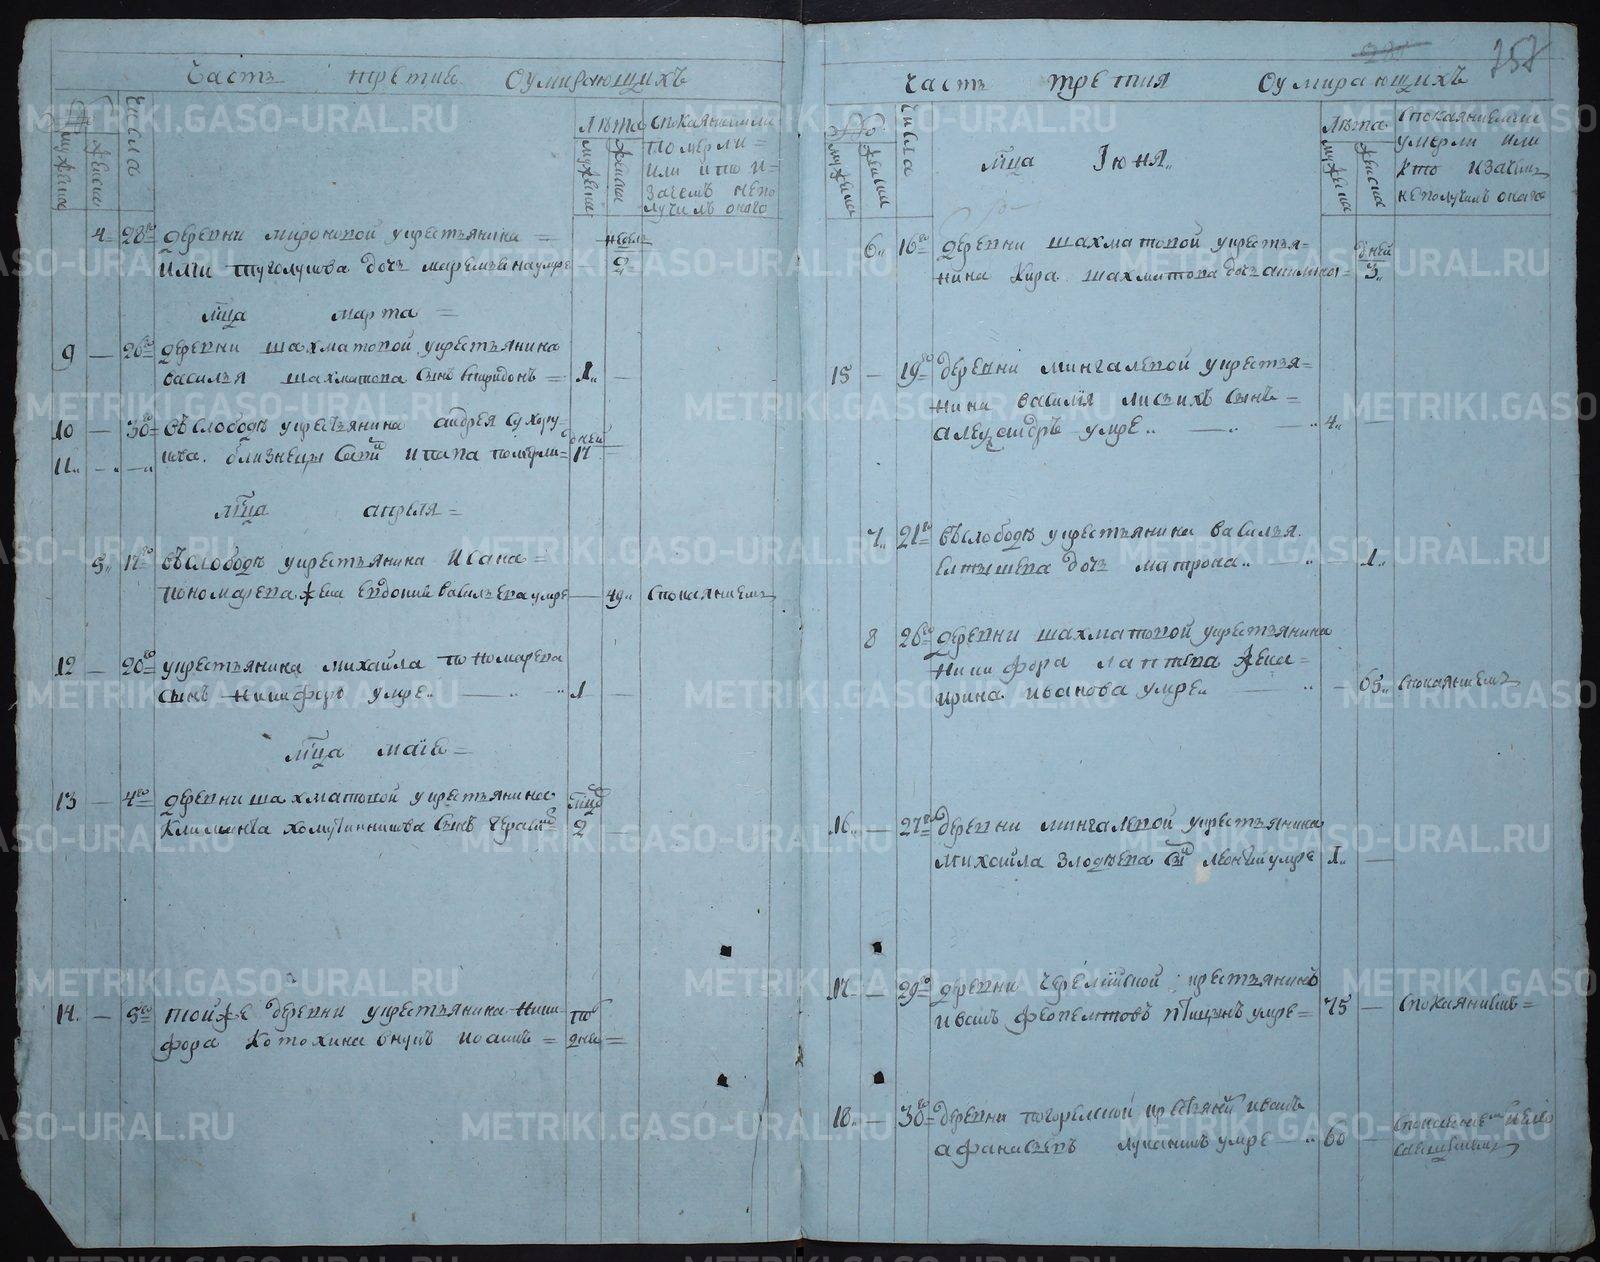 Часть третия Оумирающихъ
мужеска
женска
Числа
Лѣта
мужеска
женска
Спокаяниемли
померли
или кто и
зачемъ непо
лучилъ онаго
4 28го деревни мироновой укрестьянина
дочь умре
недель
2
мца марта
9 — 26го деревни шахматовой укрестьянина
василья шахматова сынъ спиридонъ 1 —
10 — 30 Въслободѣ укрестьянина андрея сухору
11 — близнецы и померли
дней
17
мца апреля
5 17го въслободѣ укрестьянина Ивана
пономарева жена Евдокия василъева умре — 49 спокаяниемъ
12 — 20го укрестьянина михайла пономарева
сынъ никифоръ умре 1 —
мца маїа
13 — 4го деревни шахматовой укрестьянина
сынъ
мца
2
14 — 5го тойже деревни укрестьянина Ники
фора Котохина внукъ иоаннъ
дня
257
Часть третия Оумирающихъ
мужеска
женска
Числа
мца Июня
Лѣта
мужеска
женска
Спокаяниемли
умерли или
кто изачемъ
неполучилъ онаго
6 16го деревни шахматовой укрестья
нина Кира шахматова дочь
дней
3
15 — 19го деревни мингалевой укрестья
нина василїя лисьихъ сынъ
александръ умре 4 —
7 21го въслободѣ укрестьянина василья
дочь матрона — 1
8 26го деревни шахматовой укрестьянина
Никифора лаптева жена
ирина иванова умре — 65 спокаяниемъ
16 — 27го деревни мингалевой укрестьянина
михайла злодѣева сынъ леонтий умре 1 —
17 — 29го деревни крестьянинъ
иванъ феопемптовъ птицынъ умре 75 — спокаяниемъ
18 — 30го деревни погорелской крестьянинъ иванъ
афанасьевъ лукинихъ умре 60 —